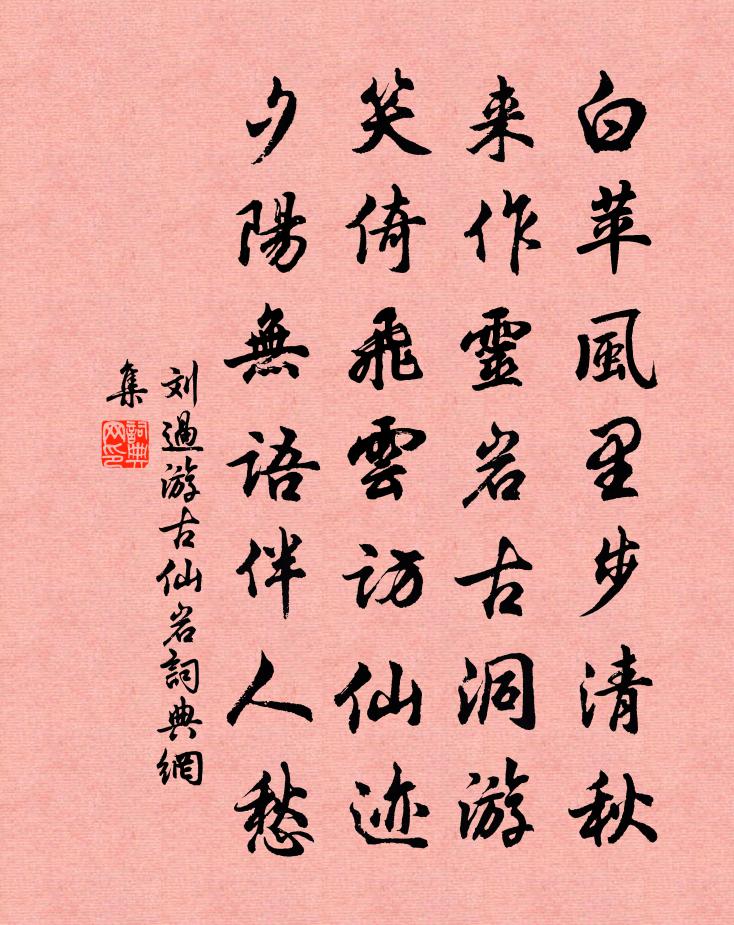 白苹風里步清秋
来作靈岩古洞游
笑倚飛雲訪仙迹
夕陽無語伴人愁
刘過游古仙岩詞典網
集
詞典
网印